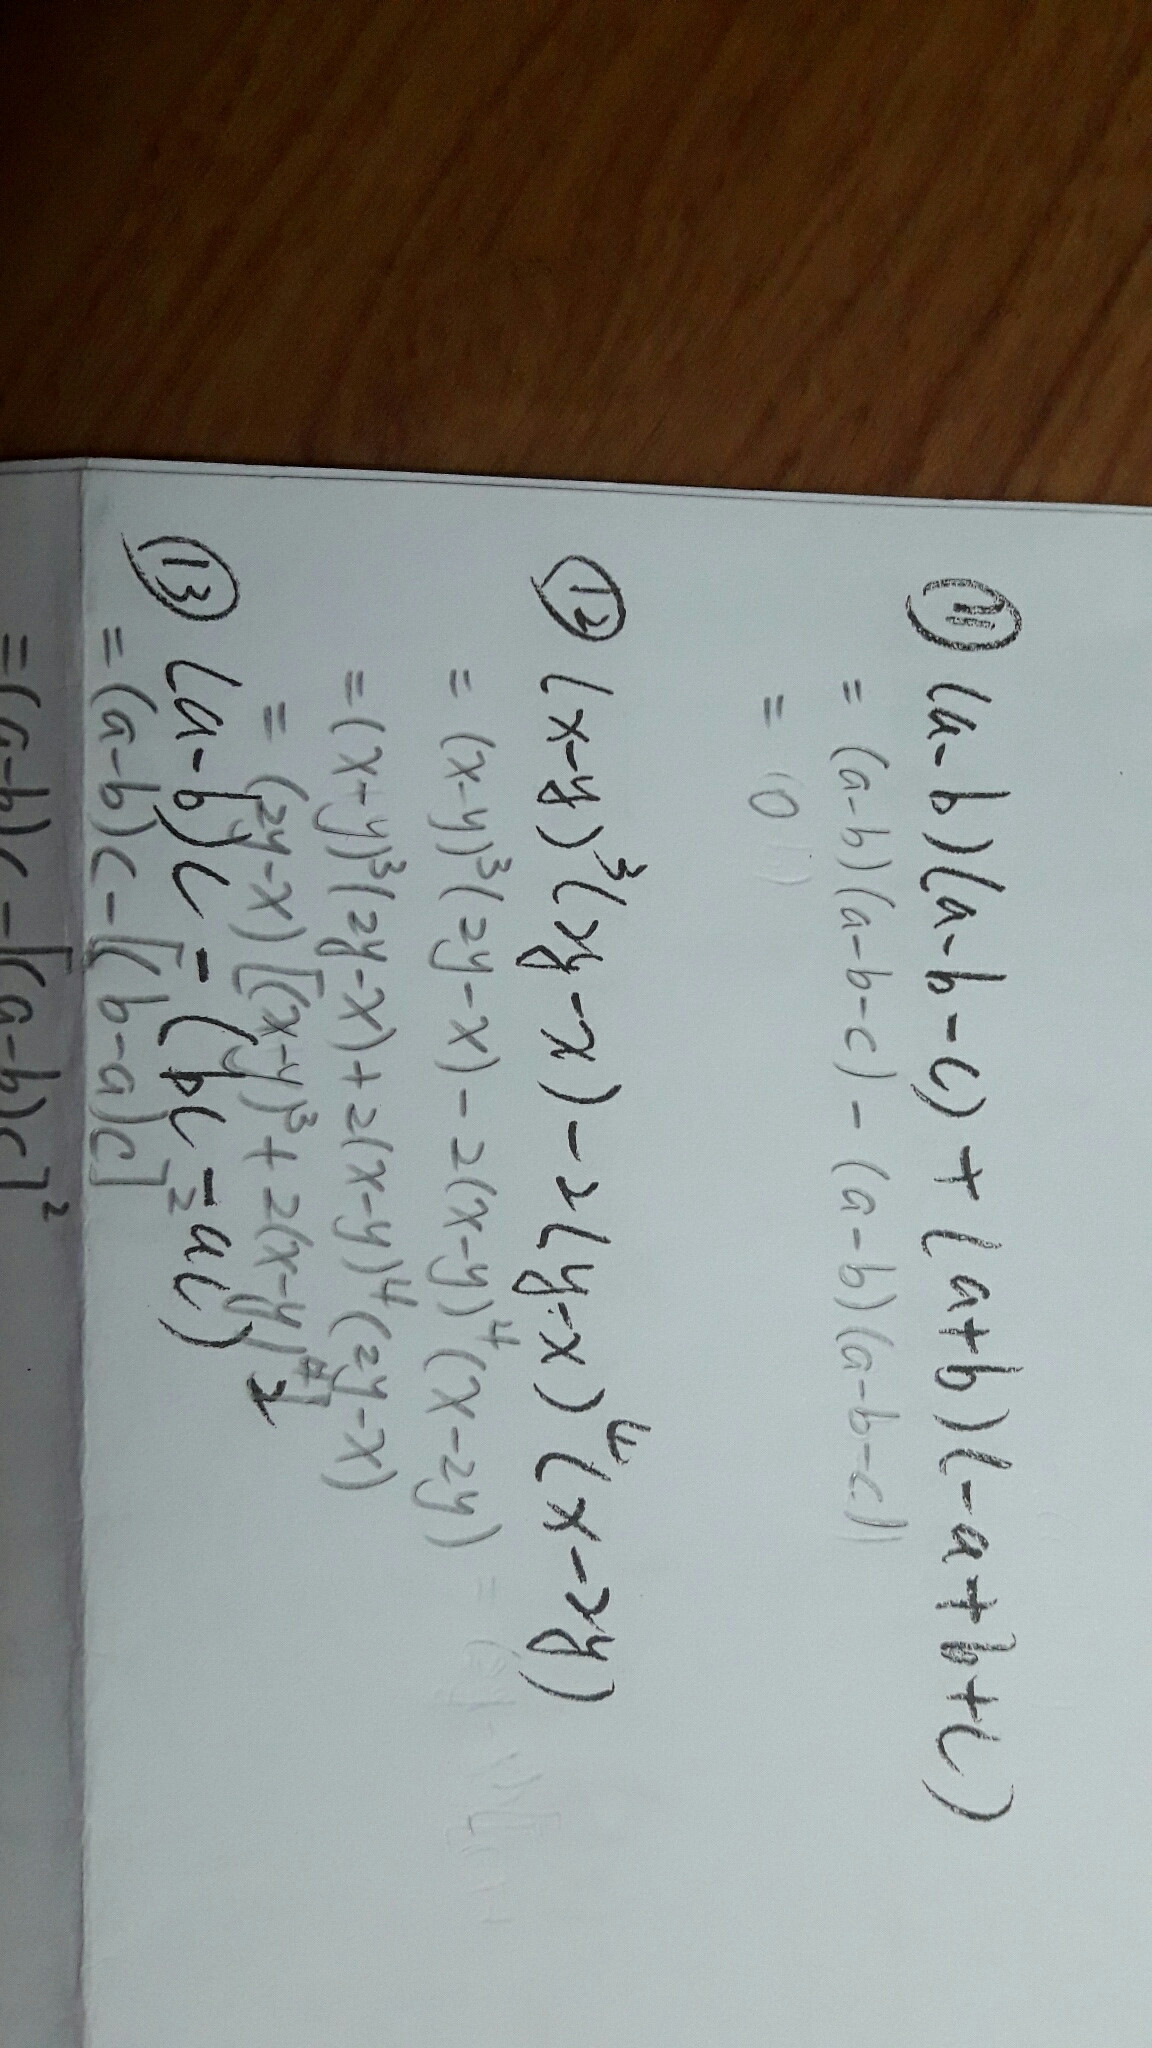 ⑪ (a-b)(a-b-c)+(a+b)(-a+b+c)
=(a-b)(a-b-c)-(a-b)(a-b-c)
= 0
⑫ (x-y)³(2y-x)-2(y-x)⁴(x-2y)
= (x-y)³(2y-x)-2(x-y)⁴(x-2y)
=(x-y)³(2y-x)+2(x-y)⁴(2y-x)
= (2y-x)[(x-y)³+2(x-y)⁴]
⑬ (a-b)c-(bc-ac)²
=(a-b)c-[(b-a)c]²
=(a-b)c-[(a-b)c]²